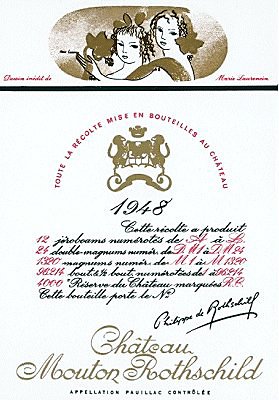 Dessin inédit de Marie Laurencin
TOUTE LA RÉCOLTE MISE EN BOUTEILLES AU CHÂTEAU
1948
Cette récolte a produit
12 jéroboams numérotés de A à L
24 double-magnums numér. de DM1 à DM24
1320 magnums numér. de M1 à M1320
96214 bout. & ½ bout. numérotées de 1 à 96214
4000 Réserve du Château marquées R.C.
Cette bouteille porte le No
Philippe de Rothschild
Château
Mouton Rothschild
APPELLATION PAUILLAC CONTRÔLÉE